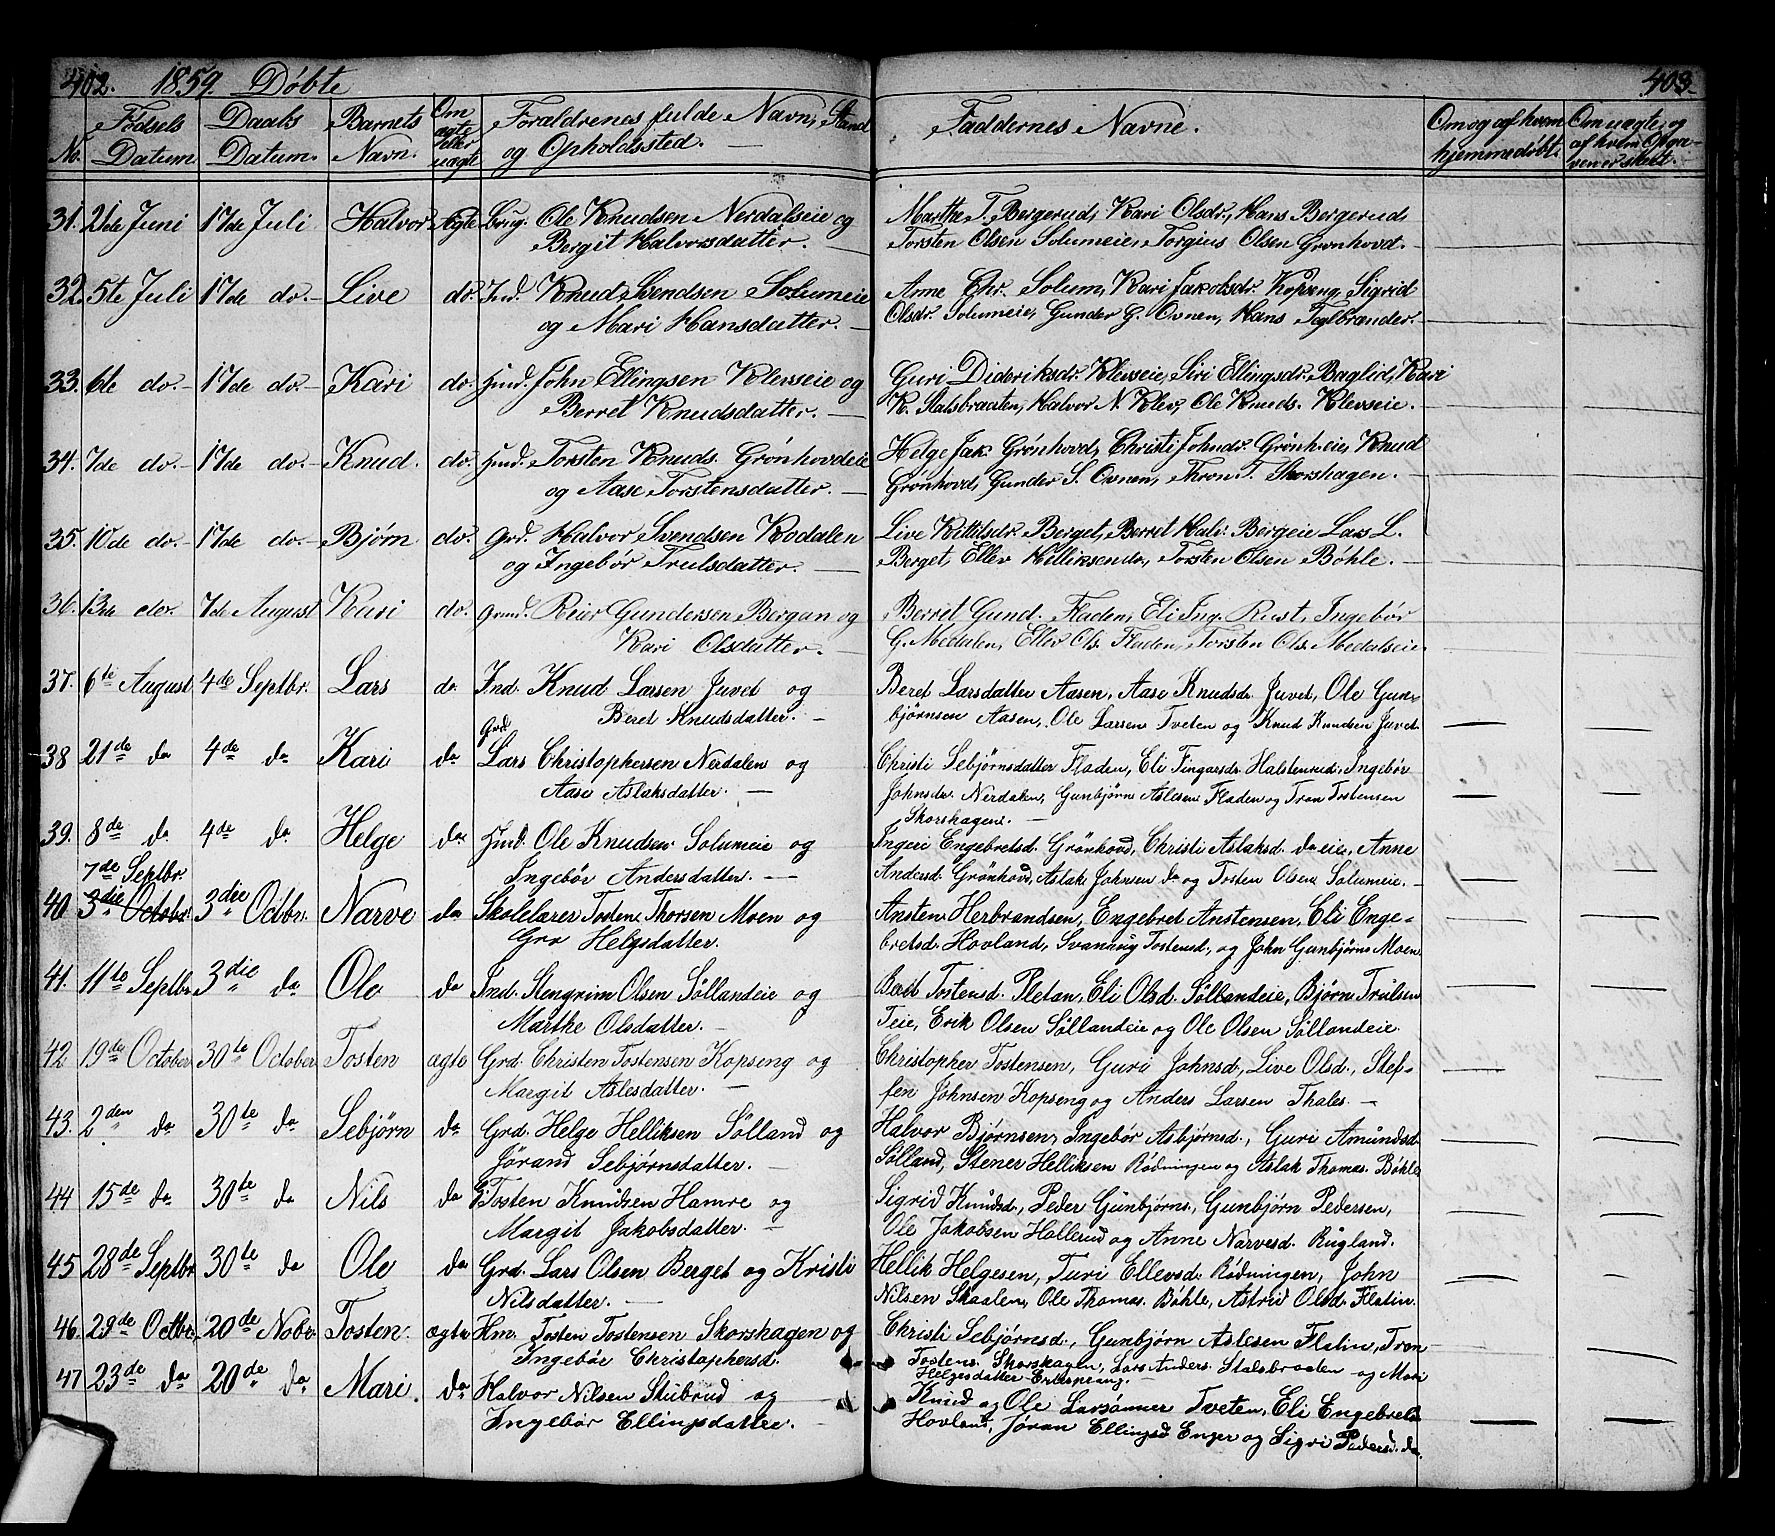 402. 1859. Døbte 403.
No. Fødsels Datum Daabs Datum. Barnets Navn. Om ægte eller uægte Forældrenes fulde Navn, Stand og Opholdssted. — Faddernes Navne. Om og af hvem hjemmedøbt. Om uægte, og af hvem Opgaven er skeet.
31. 21de Juni 17de Juli Halvor Ægte Ole Knudsen Nerdalseie og Marthe T. Bergerud, Kari Olsdr., Hans Bergerud,
Bergit Halvorsdatter. — Torsten Olsen Solumeie, Torgius Olsen Grønhovd. —
32. 5te Juli 17de do. — Live do. Ind. Knud Svendsen Solumeie Anne Chr. Solum, Kari Jakobsdr. Kopseng, Sigrid
og Mari Hansdatter. — Olsdr. Solumeie, Gunder G. Ovnen, Hans Teglbrænder. —
33. 6te do. — 17de do. — Kari do. Huusd. John Ellingsen Klevseie og Guri Dideriksdr. Klevseie, Siri Ellingsdr. Baglid, Kari
Berret Knudsdatter. — K. Stalsbraaten, Halvor N. Klev, Ole Knuds. Klevseie.
34. 7de do. — 17de do. — Knud. do. Huusd. Torsten Knuds. Grønhovdeie Helge Jak. Grønhovd, Christi Johnsdr. Grønh.eie, Knud
og Aase Torstensdatter. — Grønhovd, Gunder S. Ovnen, Thron T. Skorshagen. —
35. 10de do. — 17de do. — Bjørn do. Grd. Halvor Svendsen Kodalen Live Kittilsdr. Berget, Berret Halv. Bergeie Lars L.
og Ingebør Trulsdatter. — Berget, Ellev Helliksen do., Torsten Olsen Bøhle. —
36. 13de do. 7de August Kari do. Reier Gundersen Bergan og Berret Gund. Fladen, Eli Ing. Rust, Ingebør
Kari Olsdatter. — G. Medalen, Ellev Ols. Fladen, Torsten Ols. Medalseie.
37. 6te August 4de Septbr. Lars do. Ind. Knud Larsen Juvet og Beret Larsdatter Aasen, Aase Knudsd. Juvet, Ole Gun-
Beret Knudsdatter. — bjørnsen Aasen, Ole Larsen Tveten og Knud Knudsen Juvet.
38 21de da 4de da Kari da Grd. Lars Christophersen Nerdalen og Christi Sebjørnsdatter Fladen, Eli Fingarsdr. Halstenrud, Ingebør
Aase Aslaksdatter. — Johnsdr. Nerdalen, Gunbjørn Aslesen Fladen og Tron Tostensen
Skorshagen. —
39. 8de da 4de da Helge da Huusd. Ole Knudsen Solumeie og Ingeie Engebretsd. Grønhovd, Christi Aslaksd. da eie, Anne
Ingebør Andersdatter. — Andersd. Grønhovd, Aslak Johnsen da og Tosten Olsen Solumeie. —
7de Septbr.
40 3die October 3die Octbr. Narve da Skolelærer Tosten Thorsen Moen og Ansten Herbrandsen, Engebret Anstensen, Eli Enge-
Gro Helgesdatter. bretsd. Hovland, Svanaug Tostensd., og John Gunbjørns. Moen
41. 11te Septbr. 3die da Ole da Ind. Stengrim Olsen Søllandeie og Berit Tostensd. Pletan, Eli Olsd. Søllandeie, Bjørn Trulsen
Marthe Olsdatter. — Teie, Erik Olsen Søllandeie og Ole Olsen Søllandeie.
42 19de October 30te October Tosten ægte Grd. Christen Tostensen Kopseng og Christopher Tostensen, Guri Johnsd., Live Olsd., Stef-
Margit Aslesdatter. — fen Johnsen Kopseng og Anders Larsen Thales. —
43. 2den da 30te da Sebjørn da Grd. Helge Helliksen Sølland og Halvor Bjørnsen, Ingebør Asbjørnsd., Guri Amundsd.
Jørand Sebjørnsdatter. — Sølland, Stener Helliksen Rødningen og Aslak Thomas. Bøhle
44 15de da 30te da Nils da Tosten Knudsen Hamre og Sigrid Knudsd., Peder Gunbjørns., Gunbjørn Pedersen,
Margit Jakobsdatter. — Ole Jakobsen Hallerud og Anne Narvesd. Rugland.
45 28de Septbr. 30te da Ole da Grd. Lars Olsen Berget og Kristi Hellik Helgesen, Turi Ellevsd. Rødningen, John
Nilsdatter. — Nilsen Skaalen, Ole Thomas. Bøhle, Astrid Olsd. Flatin.
46. 29de Octbr. 20de Novbr. Tosten. ægte Hm. Tosten Tostensen Skorshagen og Christi Sebjørnsd., Gunbjørn Aslesen Flatin, Tron
Ingebør Christophersd. Tostens. Skorshagen, Lars Anders. Stalsbraaten og Mari
Helgesdatter Entesprang. —
47 23de da 20de da Mari. da Halvor Nilsen Stubrud og — Knud og Ole Larsønner Tveten, Eli Engebretsd.
Ingebør Ellingsdatter. — Hovland, Jøran Ellingsd Enger og Sigri Pedersd. da.